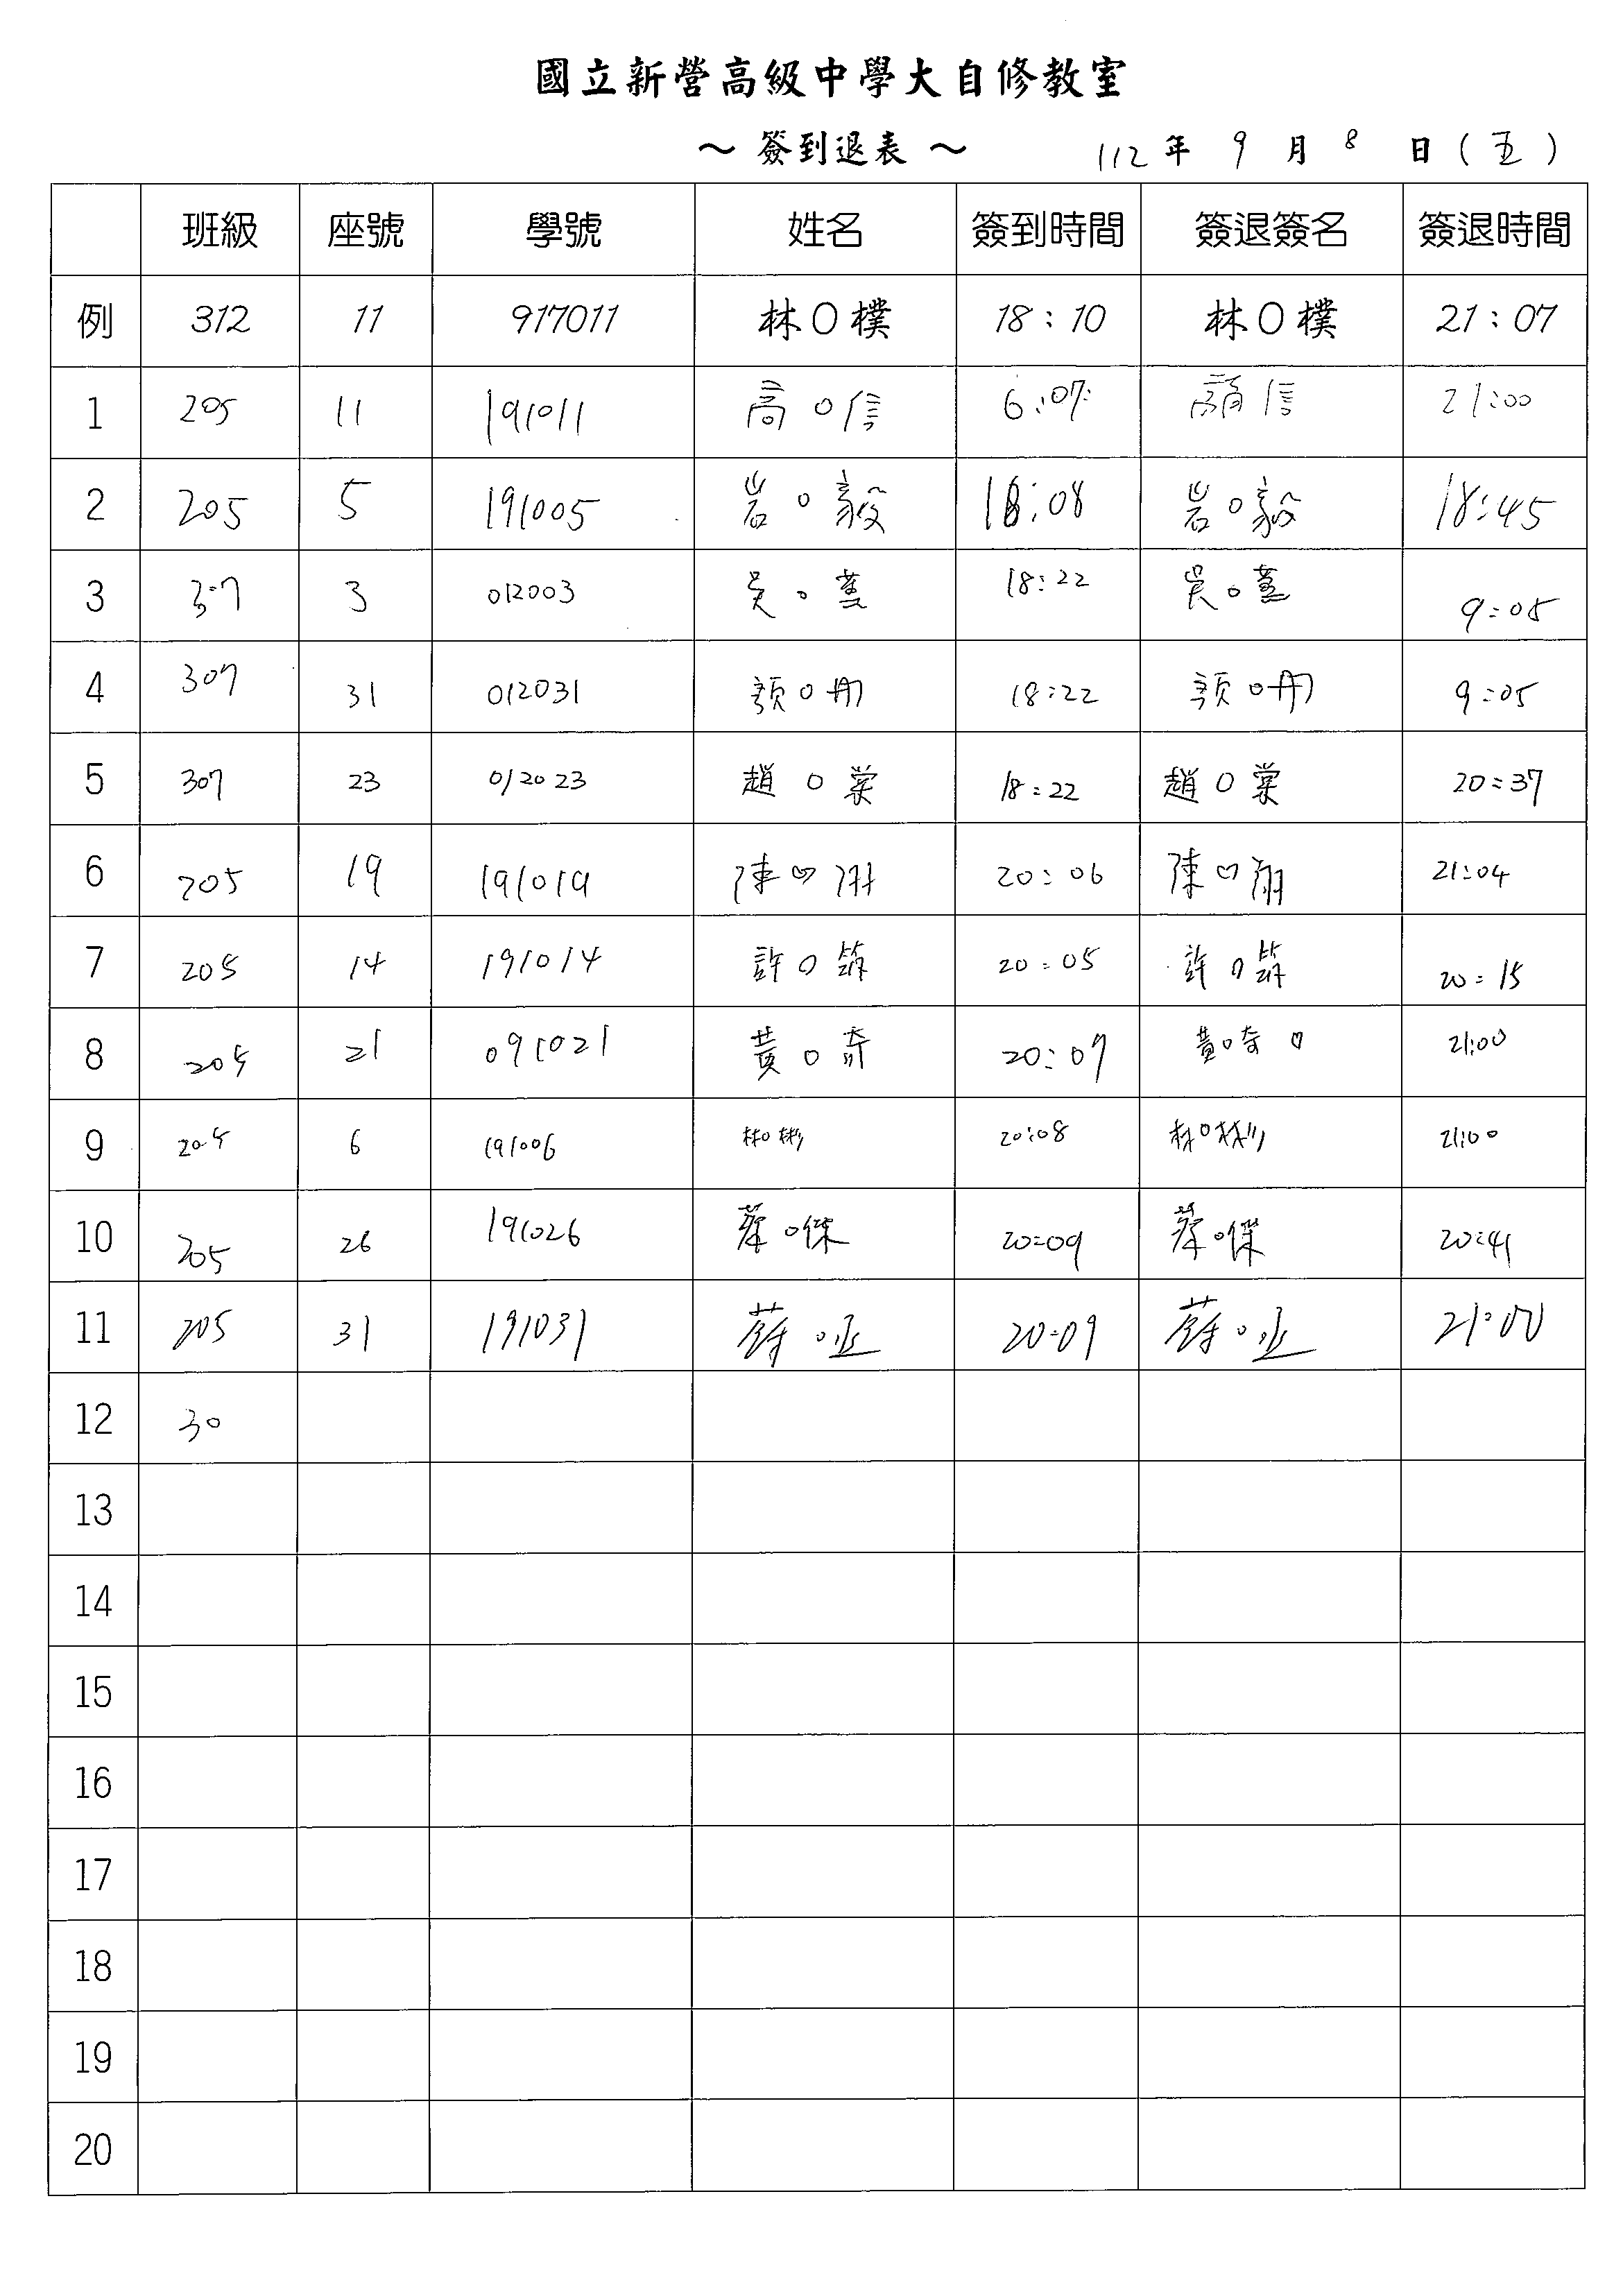 國立新營高級中學大自修教室
～ 簽到退表 ～ 112 年 9 月 8 日 ( 五 )
班級 座號 學號 姓名 簽到時間 簽退簽名 簽退時間
例 312 11 917011 林O樸 18：10 林O樸 21：07
1 205 11 191011 高O信 6:07 信 21:00
2 205 5 191005 岩O毅 18:08 岩O毅 18:45
3 307 3 012003 吳O 18:22 吳O 9:05
4 307 31 012031 O 18:22 O 9:05
5 307 23 012023 趙O棠 18:22 趙O棠 20:37
6 205 19 191019 陳O翔 20:06 陳O翔 21:04
7 205 14 191014 許O 20:05 許O 20:15
8 205 21 091021 黃O奇 20:07 黃O奇 21:00
9 205 6 191006 林O彬 20:08 林O彬 21:00
10 205 26 191026 蔡O傑 20:09 蔡O傑 20:41
11 205 31 191031 O亚 20:09 O亚 21:00
12 30
13
14
15
16
17
18
19
20